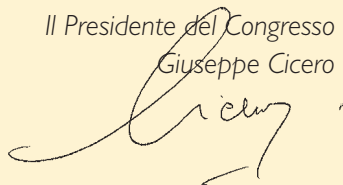 Il Presidente del Congresso
Giuseppe Cicero